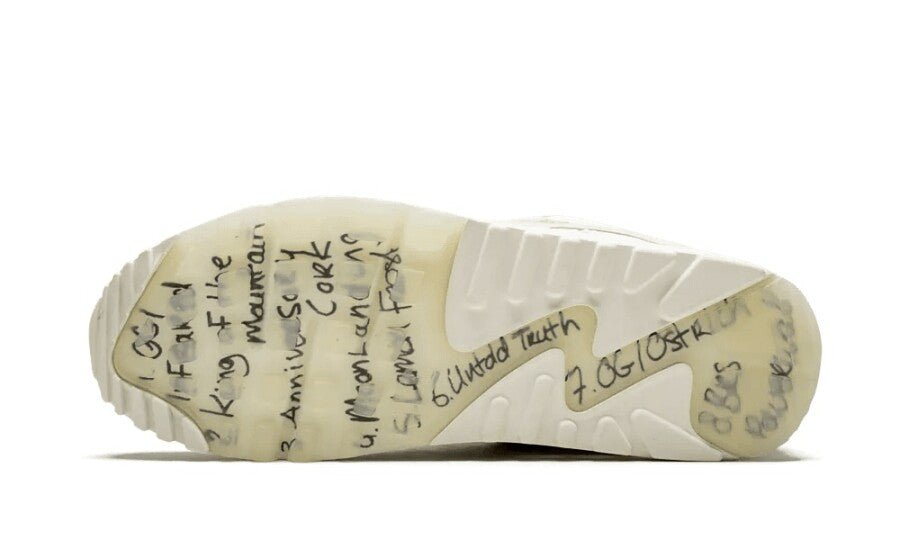 1. OG/
Infrared
2 King of the
mountain
3. Anniversary
CORK
4. Moon Landing
5. Lunar Frost
6. Untold Truth
7. OG/OSTRICH
8 BRS